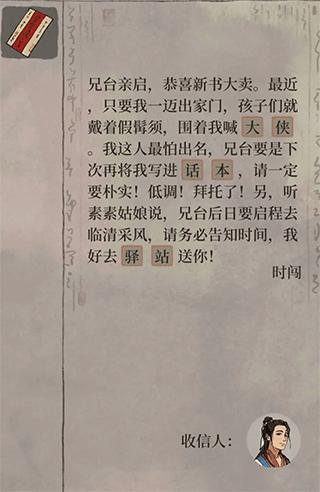 兄台亲启，恭喜新书大卖。最近
，只要我一迈出家门，孩子们就
戴着假髯须，围着我喊大侠
。我这人最怕出名，兄台要是下
次再将我写进话本，请一定
要朴实！低调！拜托了！另，听
素素姑娘说，兄台后日要启程去
临清采风，请务必告知时间，我
好去驿站送你！
时闯
收信人：